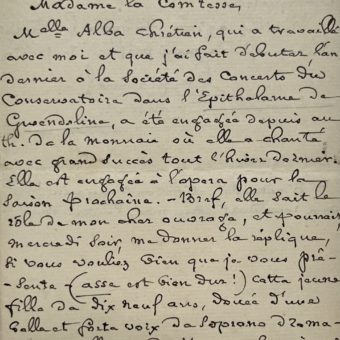 Madame la Comtesse,
Melle Alba Chrétien, qui a travaillé
avec moi et que j'ai fait débuter, l'an
dernier à la Société des Concerts du
Conservatoire dans l'Epithalame de
Gwendoline, a été engagée depuis au
th. de la monnaie où elle a chanté
avec grand succès tout l'hiver dernier.
Elle est engagée à l'opera pour la
saison prochaine. - Bref, elle sait le
rôle de mon cher ouvrage, et pourrait,
mercredi soir, me donner la réplique,
si vous voulez bien que je vous pré-
sente (asse est bien dur!) cette jeune
fille de dix neuf ans, douée d'une
belle et forte voix de soprano drama-